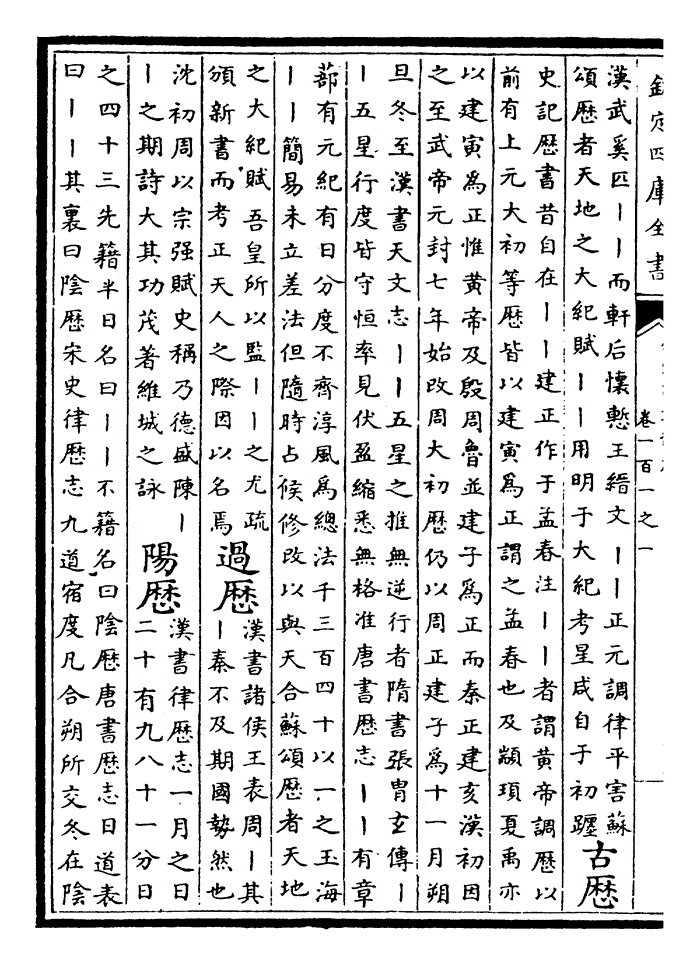 欽定四庫全書
卷一百一之一
漢武奚匹｜｜而軒后懷慙王縉文｜｜正元調律平害蘇
頌歴者天地之大紀賦｜｜用明于大紀考星咸自于初躔
古歴
史記歴書昔自在｜｜建正作于孟春注｜｜者謂黄帝調歴以
前有上元大初等歴皆以建寅爲正謂之孟春也及顓頊夏禹亦
以建寅爲正惟黄帝及殷周魯並建子爲正而秦正建亥漢初因
之至武帝元封七年始改周大初歴仍以周正建子爲十一月朔
旦冬至漢書天文志｜｜五星之推無逆行者隋書張胄玄傳｜
｜五星行度皆守恒率見伏盈縮悉無格准唐書歴志｜｜有章
蔀有元紀有日分度不齊淳風爲總法千三百四十以一之玉海
｜｜簡易未立差法但隨時占候修改以與天合蘇頌歴者天地
之大紀賦吾皇所以監｜｜之尤疏
頒新書而考正天人之際因以名焉
過歴
漢書諸侯王表周｜其
｜秦不及期國勢然也
沈初周以宗强賦史稱乃德盛陳｜
｜之期詩大其功茂著維城之詠
陽歴
漢書律歴志一月之日
二十有九八十一分日
之四十三先籍半日名曰｜｜不籍名曰陰歴唐書歴志日道表
曰｜｜其裏曰陰歴宋史律歴志九道宿度凡合朔所交冬在陰